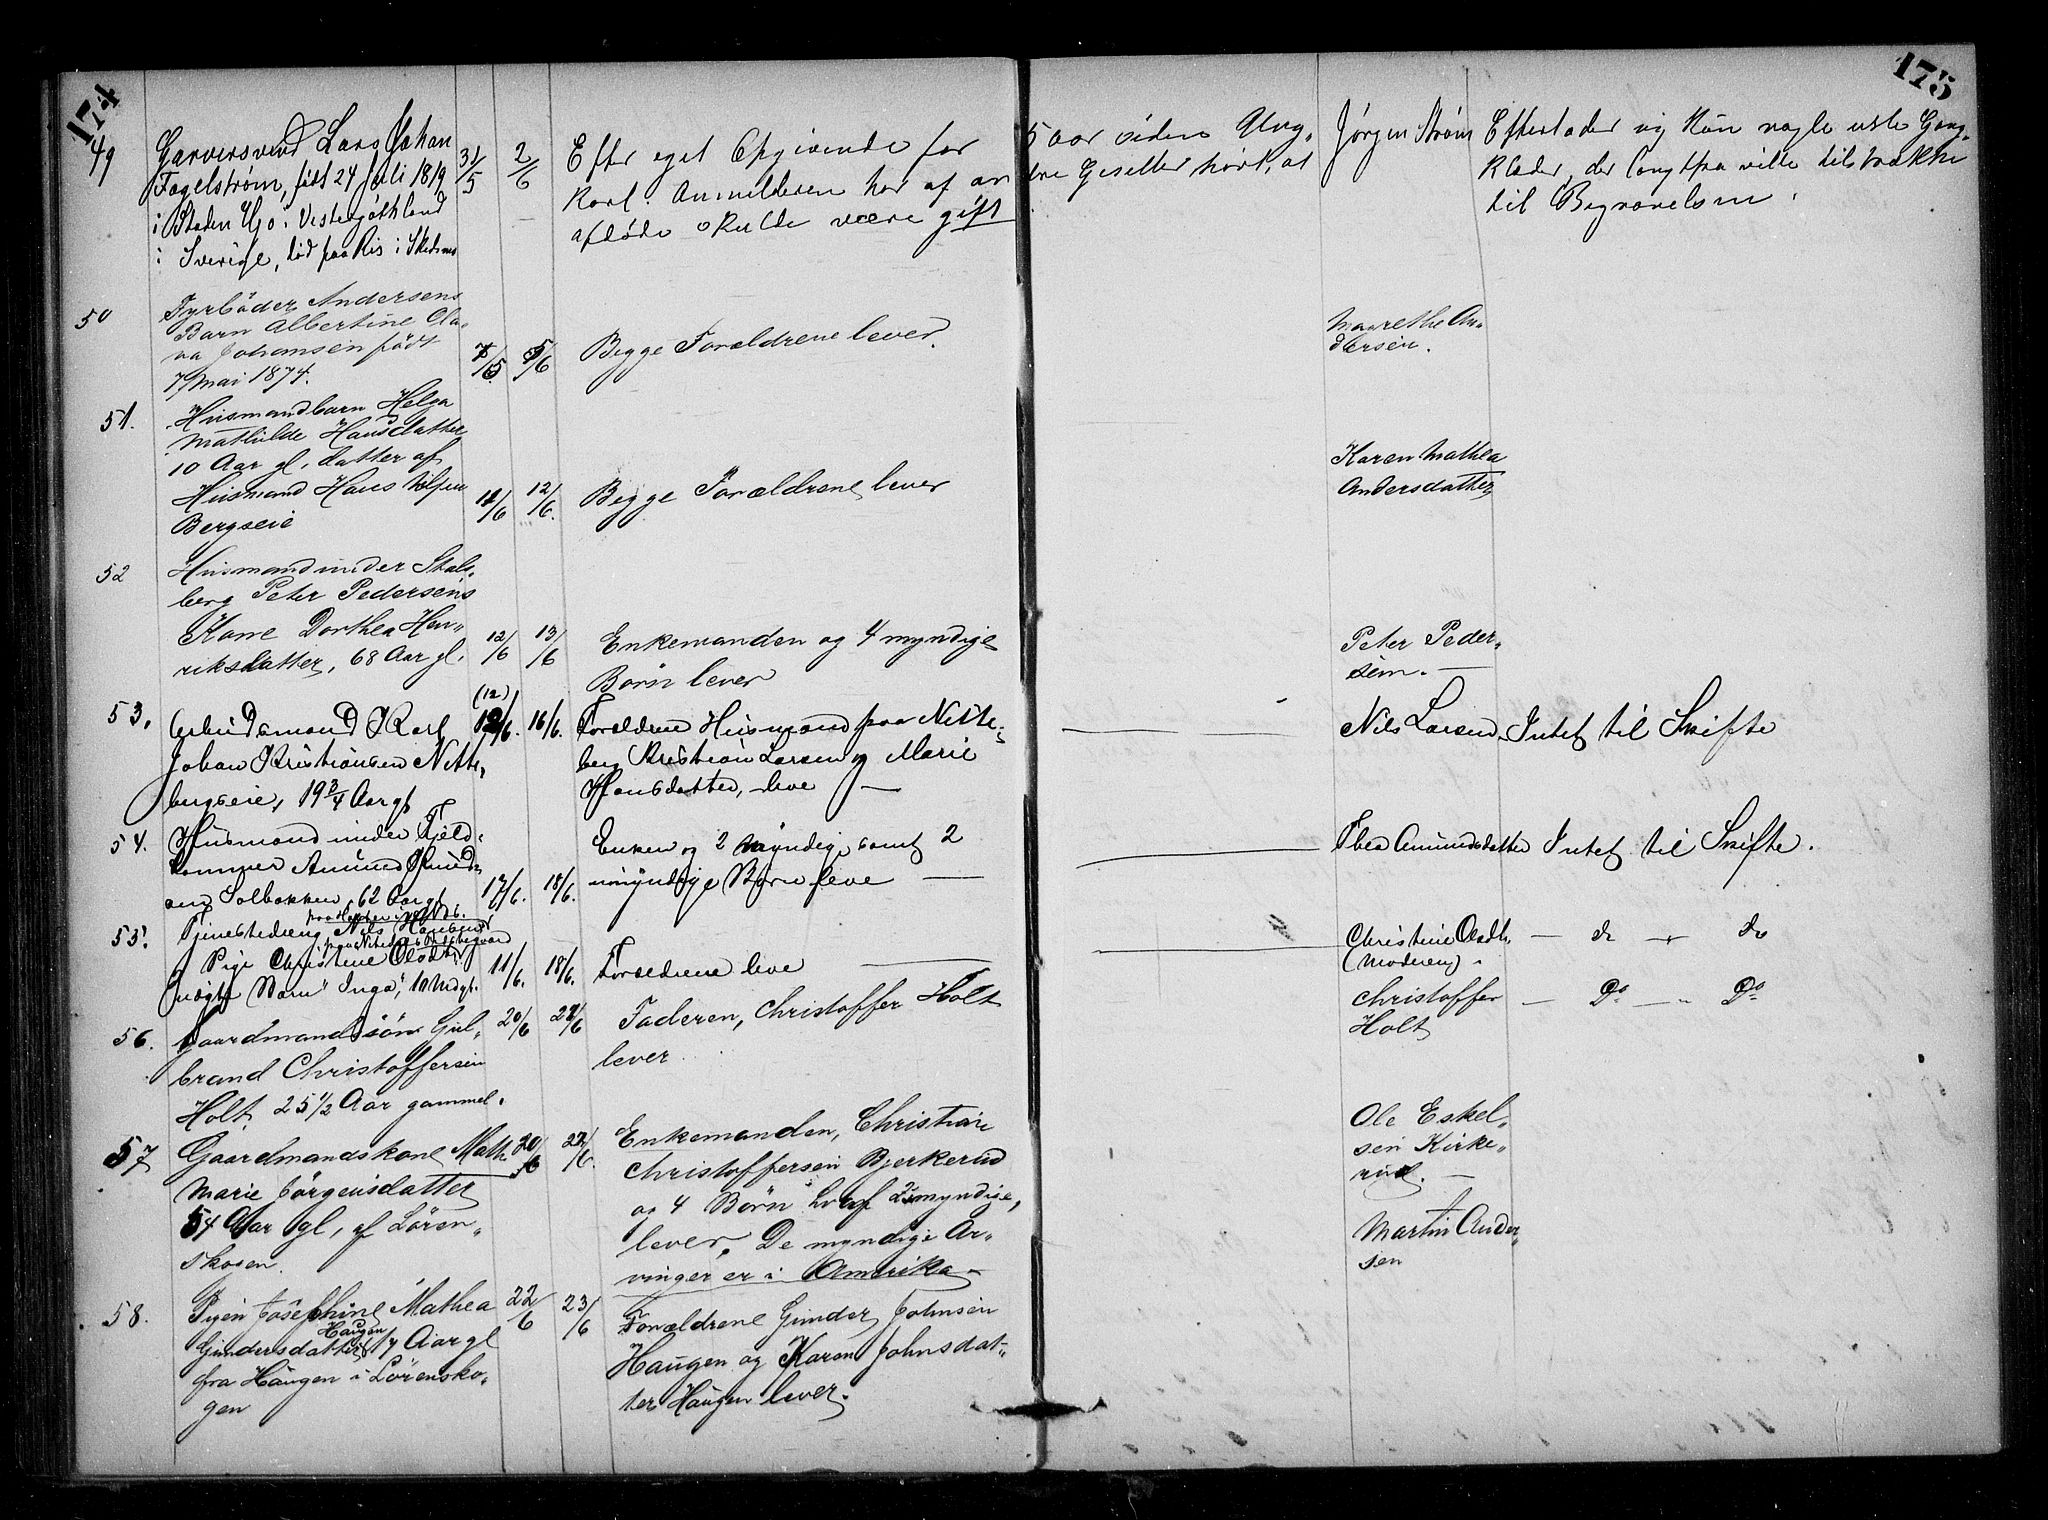 174
175
49
Garversvend Lars Johan
Fagelstrøm, født 24 Juli 1819
i Staden Hjo i Vestergøthland
i Sverige, død paa Ris i Skedsmo
31/5
2/6
Efter eget Opgivende for 5 aar siden Ung-
karl. Anmelderen har af andre Geseller hørt, at
afdøde skulde være gift
Jørgen Strøm
Efterlader sig kun nogle usle Gang-
klæder, der langtfra ville tilstrække
til Begravelsen.
50
Fyrbøder Andersens
Barn Albertine Ola-
va Johansen født
7 Mai 1874.
5/6
Begge Forældrene lever.
Marethe An-
dersen.
51.
Husmandbarn Helga
Mathilde Hansdatter
10 Aar gl. datter af
Husmand Hans Nilsen
Bergseie
11/6
12/6.
Begge Forældrene lever
Karen Mathea
Andersdatter
52
Husmand under Stals-
berg Peter Pedersens
Kone Dorthea Hen-
riksdatter, 68 Aar gl.
12/6
13/6
Enkemanden og 4 myndige
Børn lever
Peter Peder-
sen. —
53.
Arbeidsmand Karl
Johan Kristiansen Nitte-
bergseie, 19 3/4 Aar gl
(12)
12/6.
16/6.
Foreldrene Husmand paa Nitte-
berg Kristian Larsen og Marie
Hansdatter, leve —
Nils Larsen
Intet til Skifte
54.
Husmand under Fjeld-
hammer Amund
Solbakken, 62 Aar gl
17/6.
18/6.
Enken og 2 Myndige samt 2
umyndige Børn leve —
Thea Amundsdatter
Intet til Skifte.
55.
Tjenestedreng Nils Hansen
Pige Christine Olsdtr
uægte Barn "Inga", 10 Md gl.
11/6.
18/6.
Foreldrene leve —
Christine Olsdtr
(Moderen).
— do — " do
56.
Gaardmandssøn Gul-
brand Christoffersen
Holt. 25 1/2 Aar gammel.
20/6
Faderen, Christoffer Holt
lever
Christoffer
Holt
— Do — " Do
57
Gaardmandskone Math.
Marie Jörgensdatter
54 Aar gl, af Lören-
skogen.
20/6
Enkemanden, Christian
Christoffersen Bjerkerud
og 4 Børn hvaf 2 umyndige,
lever. De myndige Ar-
vinger er i Amerika —
Ole Eskel-
sen Kirke-
rud. —
58.
Pigen Josephine Mathea
Haugen
Gundersdatter 7 Aar gl
fra Haugen i Lörensko-
gen
22/6
23/6
Forældrene Gunder Johnsen
Haugen og Karen Johnsdat-
ter Haugen lever.
Martin Ander-
sen